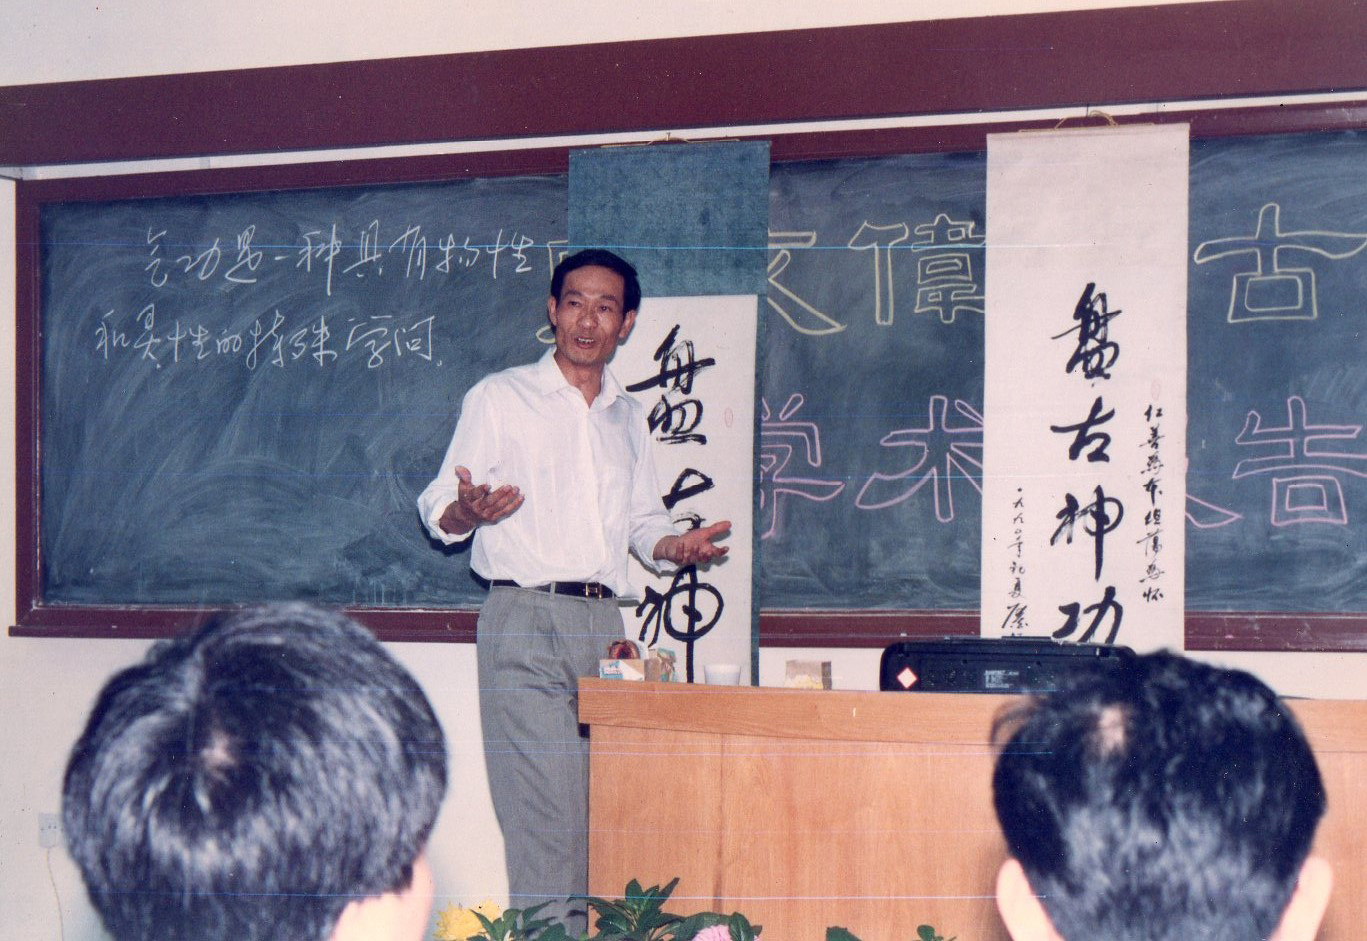 气功是一种具有物性
和灵性的特殊学问。
文偉 古
学术 告
盘古神
盘古神功
仁善为本坦荡为怀
一九九〇年初夏